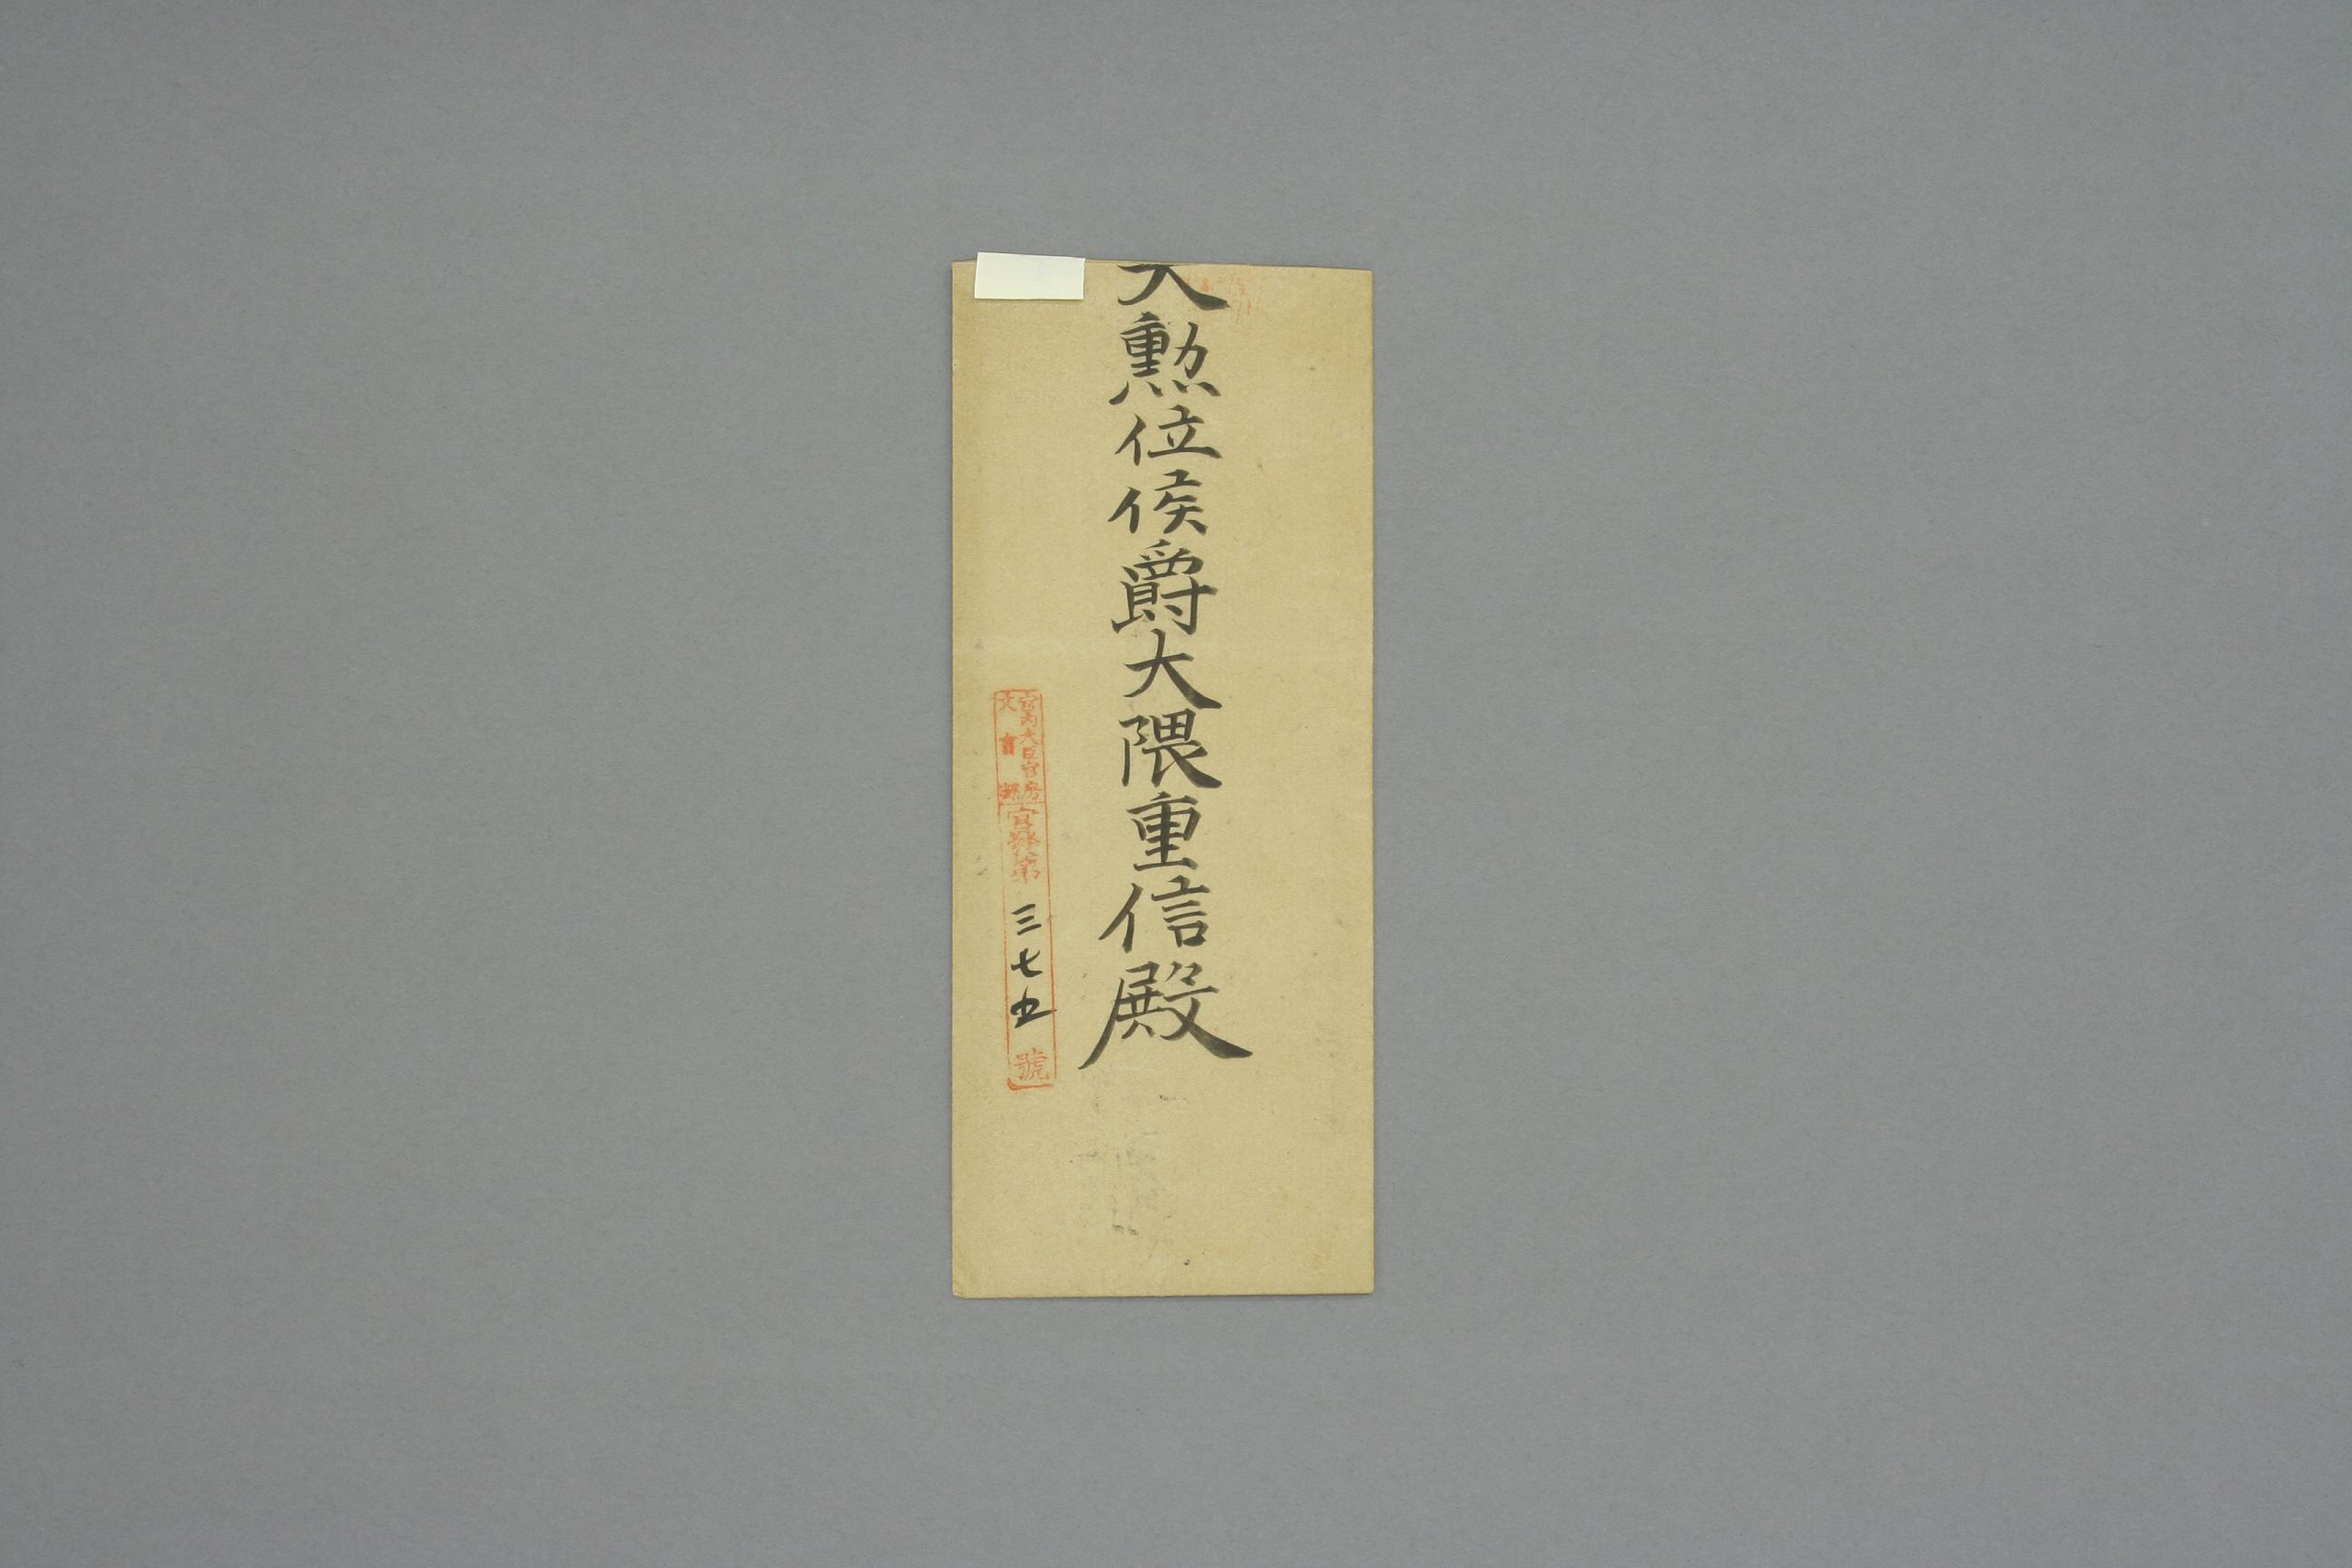 大勲位侯爵大隈重信殿
宮内大臣官房
文書課
官房第三七五號